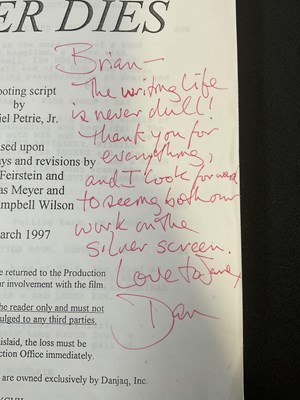 ER DIES
ooting script
by
iel Petrie, Jr.
sed upon
ys and revisions by
Feirstein and
as Meyer and
ampbell Wilson
arch 1997
e returned to the Production
ur involvement with the film
the reader only and must not
ulged to any third parties.
islaid, the loss must be
ction Office immediately.
are owned exclusively by Danjaq, Inc.
Brian—
The writing life
is never dull!
Thank you for
everything,
and I look forward
to seeing both our
work on the
silver screen.
Love to Jane,
Dan